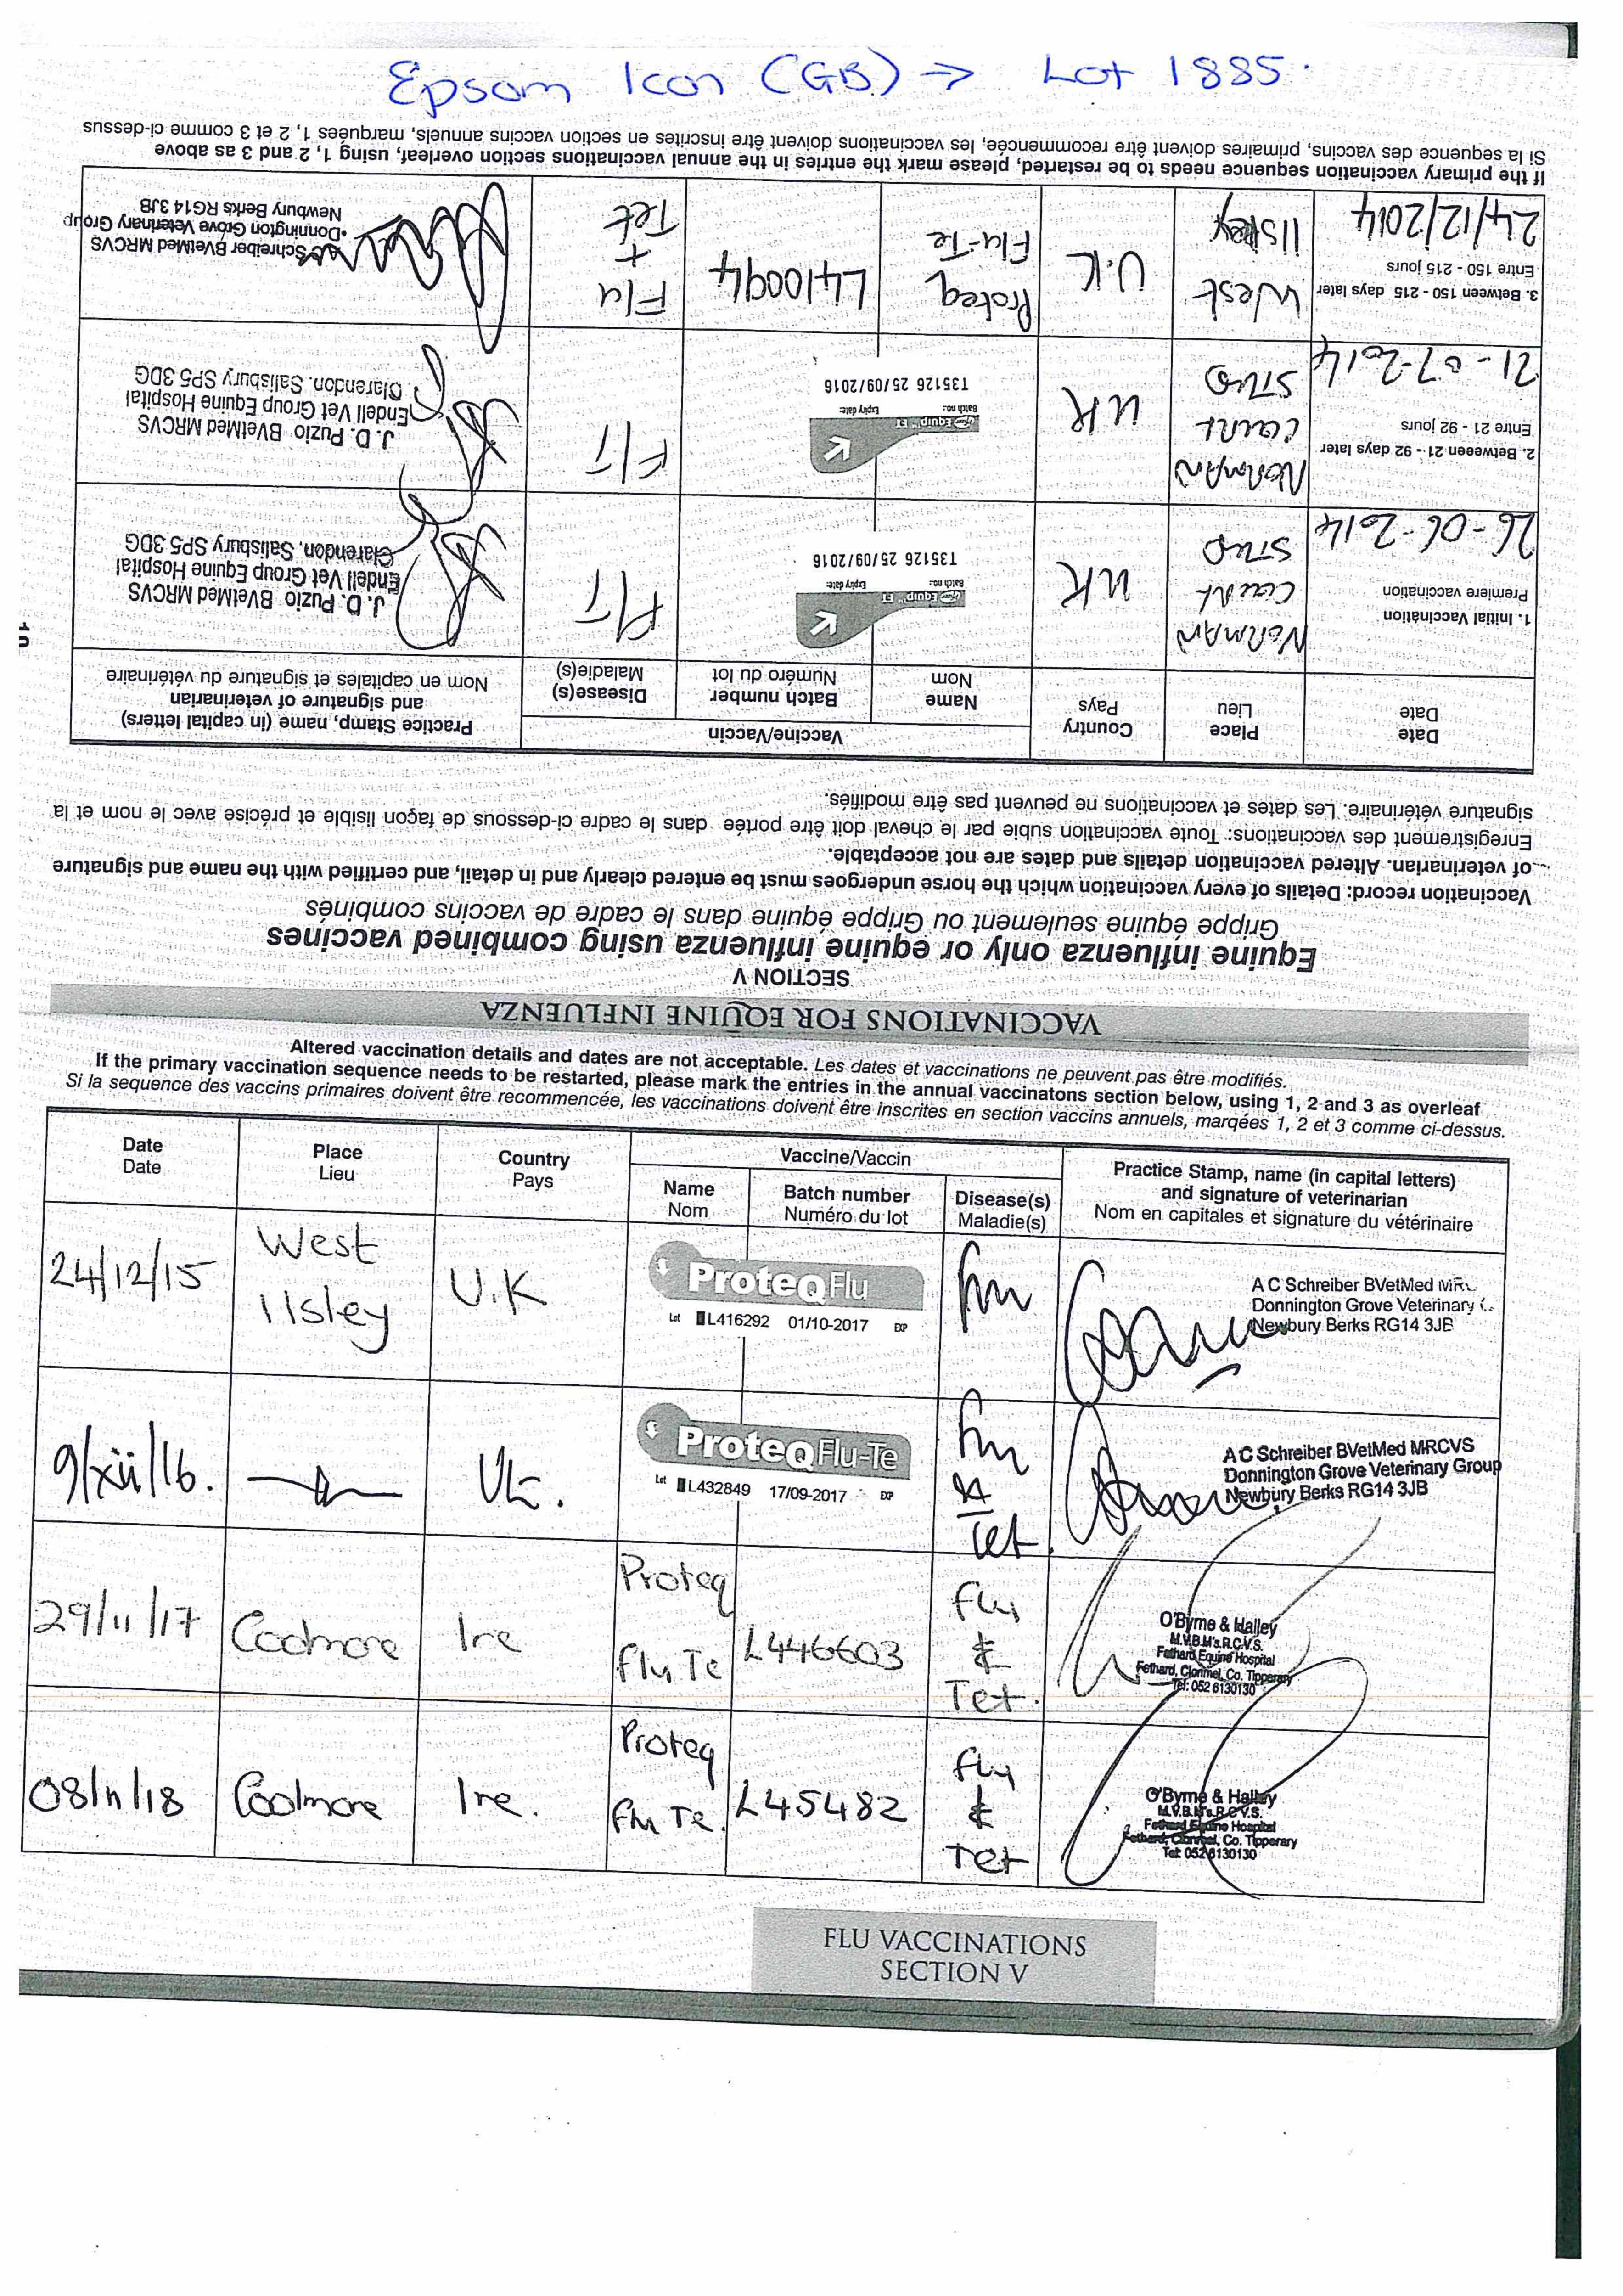 Epsom Icon (GB) → Lot 1885.
VACCINATIONS FOR EQUINE INFLUENZA
SECTION V
Equine influenza only or equine influenza using combined vaccines
Grippe équine seulement ou Grippe équine dans le cadre de vaccins combinés
Vaccination record: Details of every vaccination which the horse undergoes must be entered clearly and in detail, and certified with the name and signature
of veterinarian. Altered vaccination details and dates are not acceptable.
Enregistrement des vaccinations: Toute vaccination subie par le cheval doit être portée dans le cadre ci-dessous de façon lisible et précise avec le nom et la
signature vétérinaire. Les dates et vaccinations ne peuvent pas être modifiés.
Date
Date
Place
Lieu
Country
Pays
Vaccine/Vaccin
Name
Nom
Batch number
Numéro du lot
Disease(s)
Maladie(s)
Practice Stamp, name (in capital letters)
and signature of veterinarian
Nom en capitales et signature du vétérinaire
1. Initial Vaccination
Premiere vaccination
26-06-2014
NORMAN
COURT
STUD
UK
Equip ET
Batch no: Expiry date:
T35126 25/09/2016
F/T
J. D. Puzio BVetMed MRCVS
Endell Vet Group Equine Hospital
Clarendon, Salisbury SP5 3DG
2. Betweeen 21 - 92 days later
Entre 21 - 92 jours
21-07-2014
NORMAN
COURT
STUD
UK
Equip ET
Batch no: Expiry date:
T35126 25/09/2016
F/T
J. D. Puzio BVetMed MRCVS
Endell Vet Group Equine Hospital
Clarendon. Salisbury SP5 3DG
3. Between 150 - 215 days later
Entre 150 - 215 jours
24/12/2014
West
Ilsley
U.K
Proteq
Flu-Te
L410094
Flu
+
Tet
Schreiber BVetMed MRCVS
Donnington Grove Veterinary Group
Newbury Berks RG14 3JB
If the primary vaccination sequence needs to be restarted, please mark the entries in the annual vaccinations section overleaf, using 1, 2 and 3 as above
Si la sequence des vaccins, primaires doivent être recommencée, les vaccinations doivent être inscrites en section vaccins annuels, marquées 1, 2 et 3 comme ci-dessus
Altered vaccination details and dates are not acceptable. Les dates et vaccinations ne peuvent pas être modifiés.
If the primary vaccination sequence needs to be restarted, please mark the entries in the annual vaccinatons section below, using 1, 2 and 3 as overleaf
Si la sequence des vaccins primaires doivent être recommencée, les vaccinations doivent être inscrites en section vaccins annuels, marqées 1, 2 et 3 comme ci-dessus.
Date
Date
Place
Lieu
Country
Pays
Vaccine/Vaccin
Name
Nom
Batch number
Numéro du lot
Disease(s)
Maladie(s)
Practice Stamp, name (in capital letters)
and signature of veterinarian
Nom en capitales et signature du vétérinaire
24/12/15
West
Ilsley
U.K
ProteqFlu
Lot L416292 01/10-2017 EXP
Flu
A C Schreiber BVetMed
Donnington Grove Veterinary
Newbury Berks RG14 3JB
9/xii/16.
UK.
ProteqFlu-Te
Lot L432849 17/09-2017 EXP
Flu
&
Tet.
A C Schreiber BVetMed MRCVS
Donnington Grove Veterinary Group
Newbury Berks RG14 3JB
29/11/17
Coolmore
Ire
Proteq
Flu Te
L446603
Flu
&
Tet.
O'Byrne & Halley
M.V.B.M's.R.C.V.S.
Fethard Equine Hospital
Fethard, Clonmel, Co. Tipperary
Tel: 052 6130130
08/11/18
Coolmore
Ire.
Proteq
Flu Te.
L45482
Flu
&
Tet
O'Byrne & Halley
M.V.B.M's.R.C.V.S.
Fethard Equine Hospital
Fethard, Clonmel, Co. Tipperary
Tel: 052 6130130
FLU VACCINATIONS
SECTION V